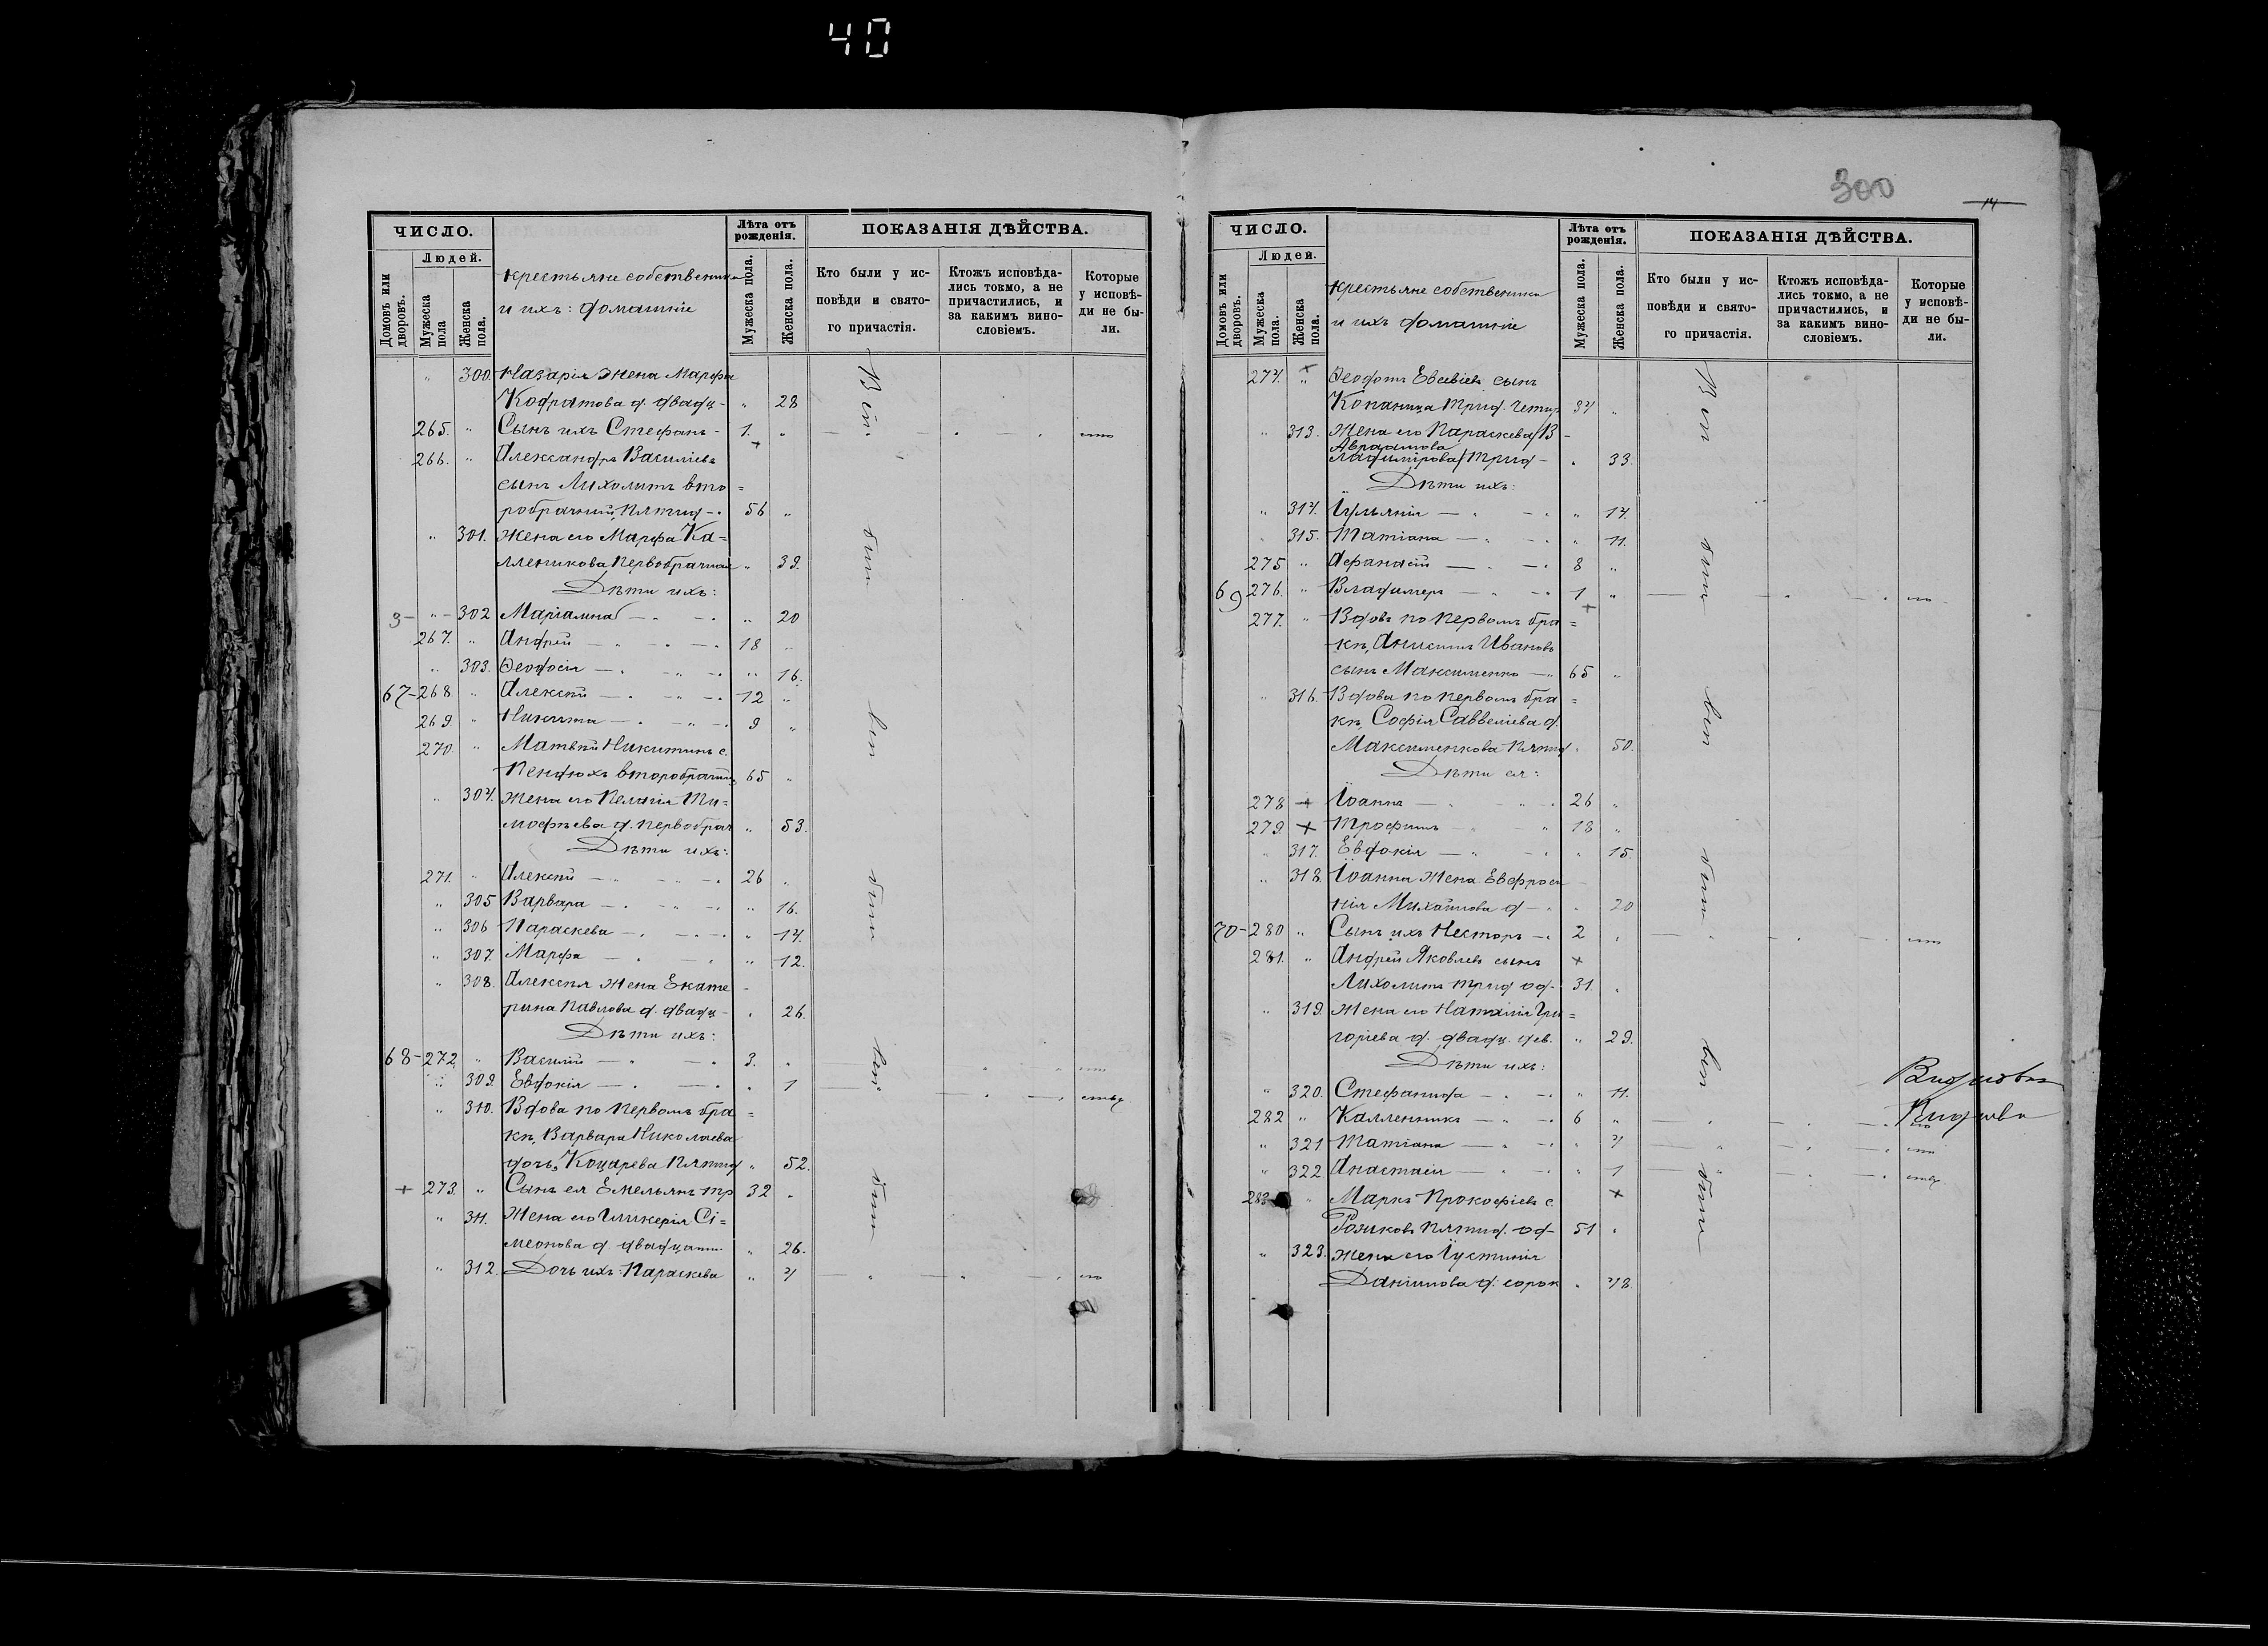 40
ЧИСЛО.
Людей.
Домовъ или дворовъ.
Мужеска пола
Женска пола.
крестьяне собственники
и ихъ: домашніе
Лѣта отъ рожденія.
Мужеска пола.
Женска пола.
ПОКАЗАНІЯ ДѢЙСТВА.
Кто были у ис-
повѣди и свято-
го причастія.
Ктожъ исповѣда-
лись токмо, а не
причастились, и
за какимъ вино-
словіемъ.
Которые
у исповѣ-
ди не бы-
ли.
„ 300. Назарія жена Марфа
Кодратова д. двадц- „ 28
265. „ Сынъ ихъ Стефанъ - 1. „
266. „ Александръ Василіевъ
сынъ Лихолитъ вто=
робрачный, Пятид-. 56 „
„ 301. Жена его Марфа Ка=
лленикова первобрачная „ 39.
Дѣти ихъ:
3- „ 302 Маріамна „ 20
267. „ Андрей 18 „
„ 303. Ѳеодосія „ 16.
67- 268 „ Алексѣй 12 „
269 „ Никита 9 „
270 „ Матвѣй Никитинъ с.
Пендюхъ второбрачный 65 „
„ 304. Жена его Пелагія Ти=
мофѣева д. первобрач „ 53.
Дѣти ихъ:
271. „ Алексѣй 26 „
„ 305 Варвара „ 16.
„ 306 Параскева „ 14.
„ 307. Марфа „ 12.
„ 308. Алексѣя жена Екате-
рина Павлова д. двадц- „ 26.
Дѣти ихъ:
68- 272 „ Василій 3. „
„ 309. Евдокія „ 1
„ 310. Вдова по первомъ бра=
кѣ, Варвара Николаева
дочь, Коцарева Пятид „ 52.
+ 273. „ Сынъ ея Емельянъ тр 32 „
„ 311. Жена его Гликерія Сі=
меонова д. двадцати. „ 26.
„ 312. Дочь ихъ: Параскева „ 4
300
14
ЧИСЛО.
Людей.
Домовъ или дворовъ.
Мужеска пола.
Женска пола.
крестьяне собственники
и ихъ домашніе
Лѣта отъ рожденія.
Мужеска пола.
Женска пола.
ПОКАЗАНІЯ ДѢЙСТВА.
Кто были у ис-
повѣди и свято-
го причастія.
Ктожъ исповѣда-
лись токмо, а не
причастились, и
за какимъ вино-
словіемъ.
Которые
у исповѣ-
ди не бы-
ли.
274. „ Ѳеодотъ Евсевіевъ сынъ
Копаница Трид. Четыр 34 „
„ 313. Жена его Параскева /В-
Авраамова
ладимірова/ Трид- „ 33.
Дѣти ихъ:
„ 314. Іуліанія „ 14.
„ 315. Татіана „ 11.
275 „ Афанасій 8 „
69 276. „ Владимеръ 1 „
277. „ Вдовъ по первомъ бра=
кѣ, Анисимъ Ивановъ
сынъ Максименко 65 „
„ 316. Вдова по первомъ бра=
кѣ, Софія Саввеліева д.
Максименкова Пятид „ 50.
Дѣти ея:
278 + Іоаннъ 26 „
279. + Трофимъ 18 „
„ 317. Евдокія „ 15.
„ 318. Іоанна жена Евфроси
нія Михайлова д „ 20
70- 280 „ Сынъ ихъ Несторъ 2 „
281. „ Андрей Яковлевъ сынъ
Лихолитъ трид од- 31. „
„ 319. Жена его Наталія Гри=
горіева д. двадц. дев. „ 29.
Дѣти ихъ:
„ 320. Стефанида „ 11.
282 „ Калленикъ 6 „
„ 321 Татіана „ 4
„ 322 Анастасія „ 1
283 „ Маркъ Прокофіевъ с.
Пятид. од- 51 „
„ 323. Жена его Іустинія
Даніилова д. сорок „ 48.